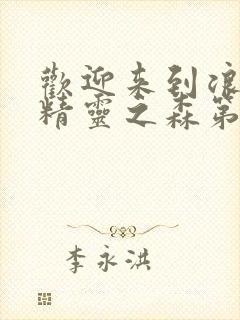 歡迎来到浪
精靈之森第
李永洪